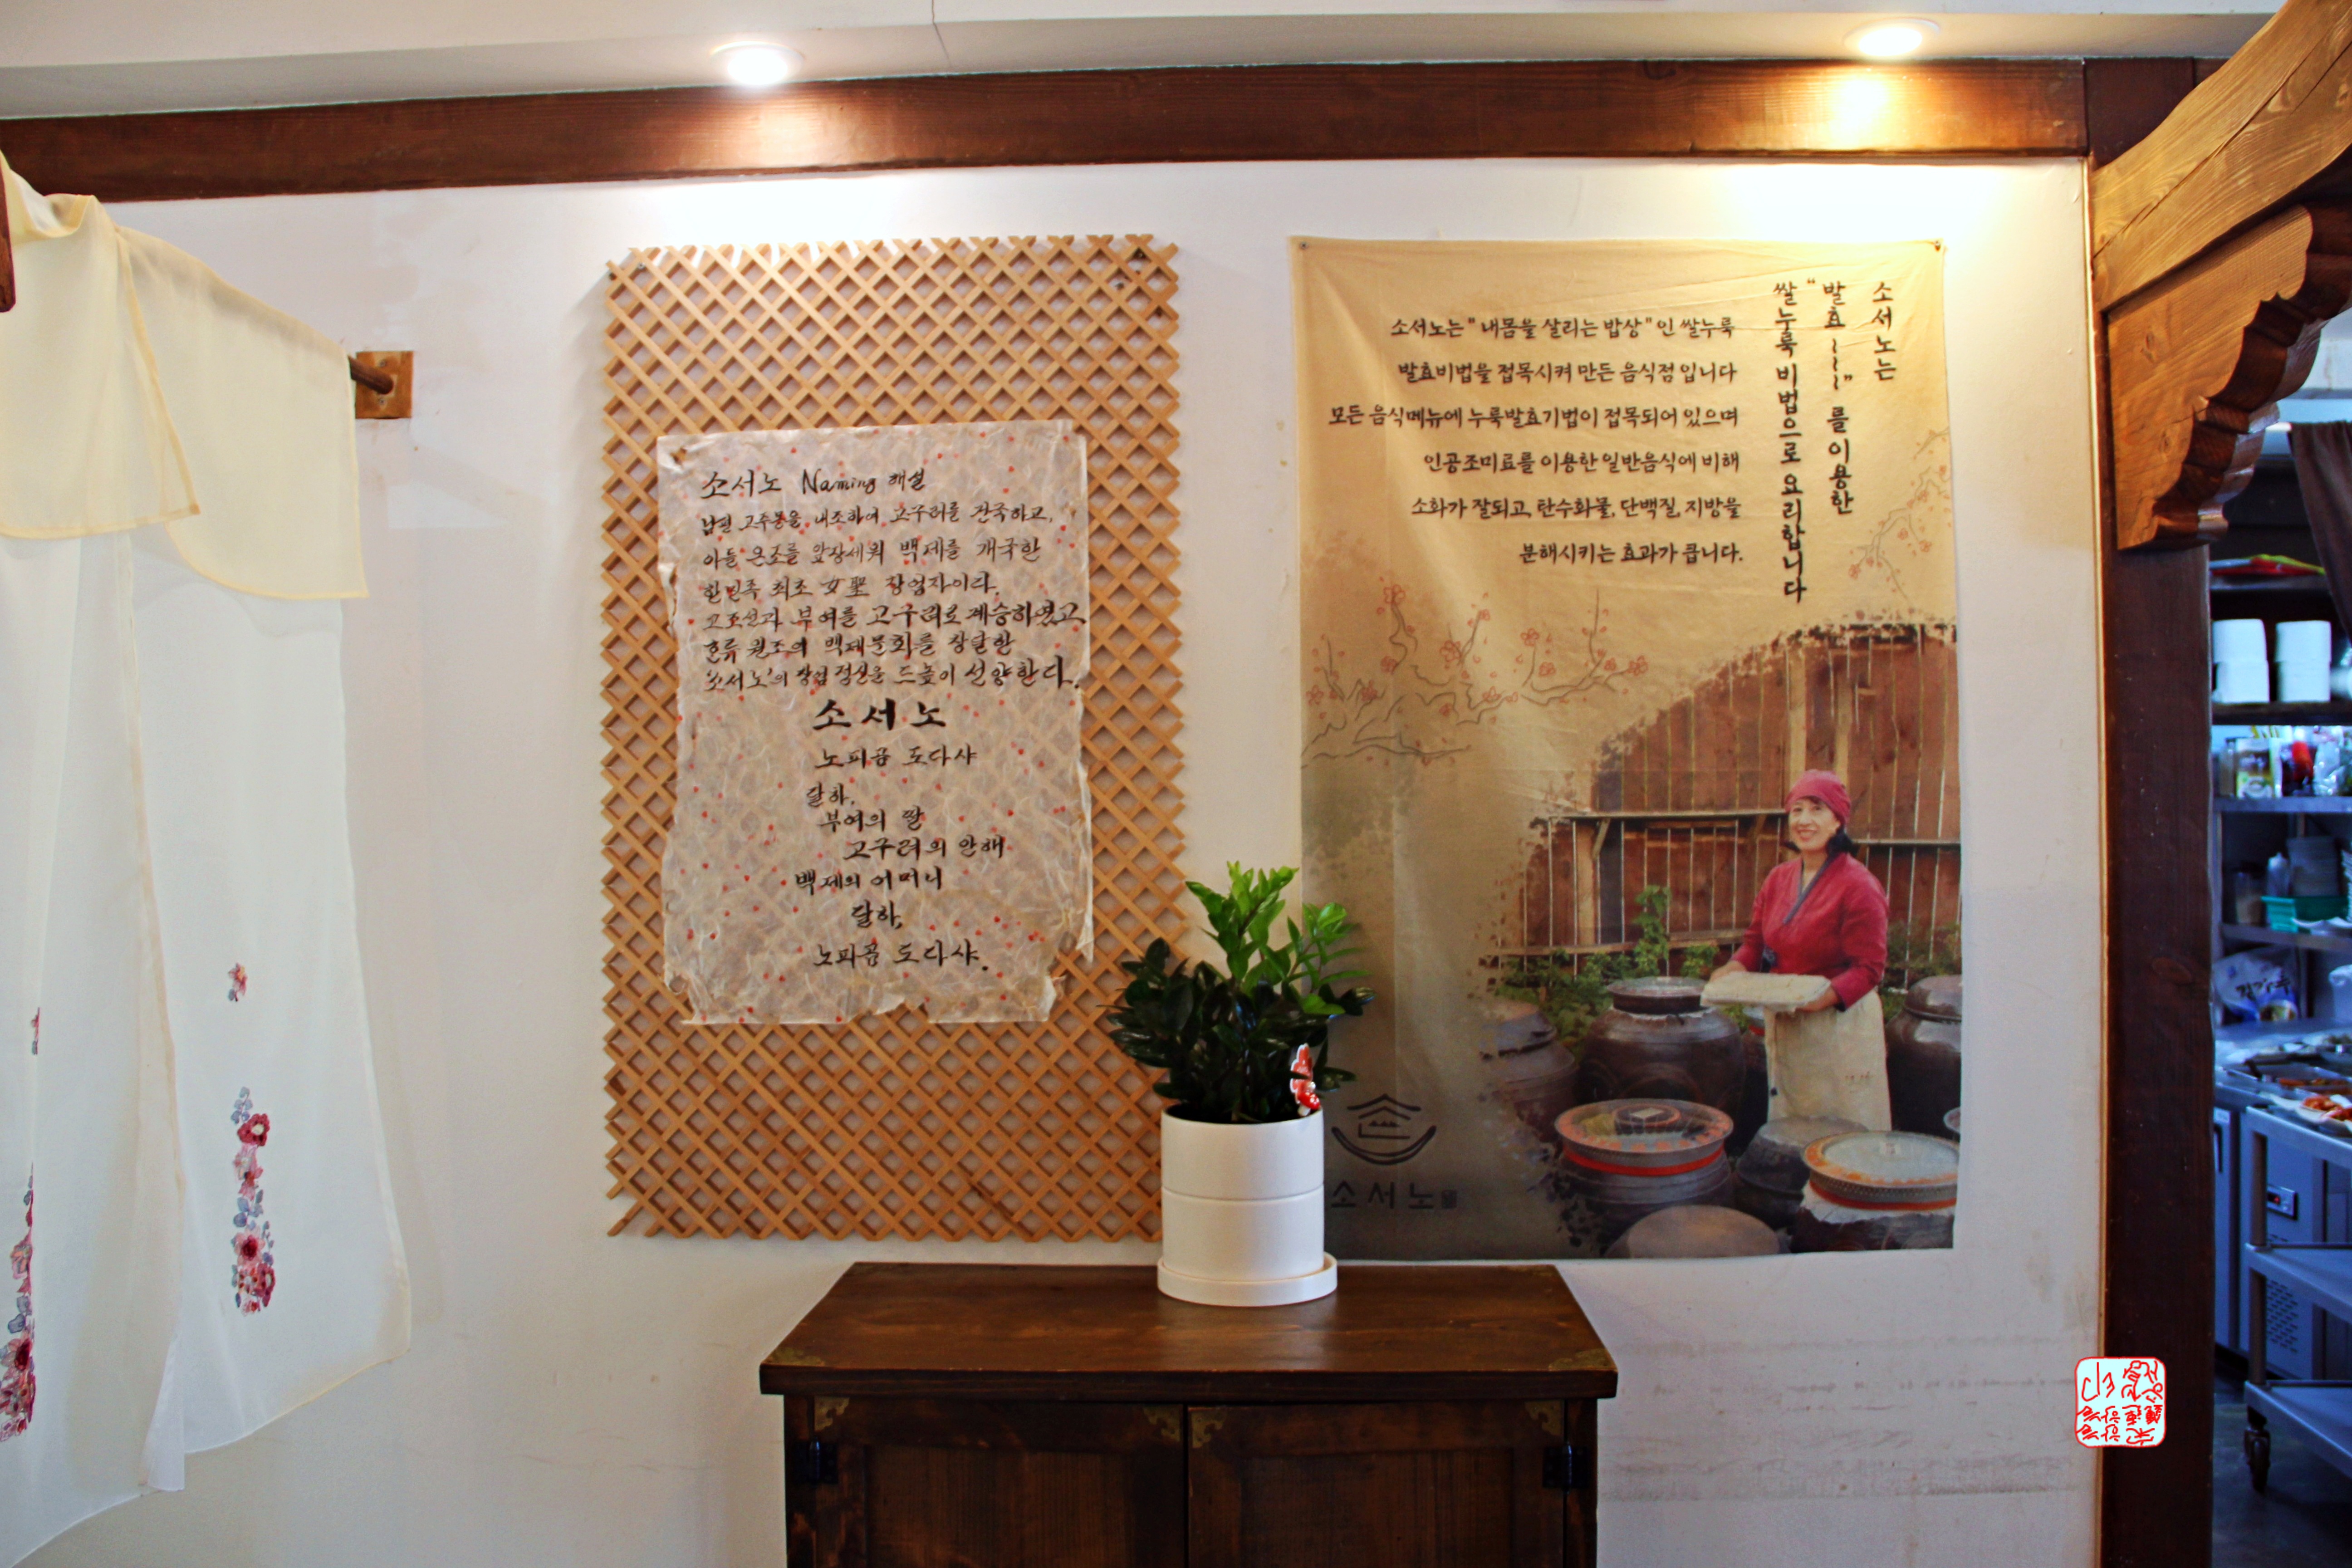 소서노 Naming 해설
남편 고주몽을 내조하여 고구려를 건국하고,
아들 온조를 앞장세워 백제를 개국한
한민족 최초 女聖 창업자이다.
고조선과 부여를 고구려로 계승하였고,
한류 원조의 백제문화를 창달한
'소서노'의 창업정신을 드높이 선양한다.
소서노
노피곰 도다샤
달하,
부여의 딸
고구려의 안해
백제의 어머니
달하,
노피곰 도다샤.
소서노는
"발효~~~"를 이용한
쌀누룩 비법으로 요리합니다
소서노는 "내몸을 살리는 밥상"인 쌀누룩
발효비법을 접목시켜 만든 음식점 입니다
모든 음식메뉴에 누룩발효기법이 접목되어 있으며
인공조미료를 이용한 일반음식에 비해
소화가 잘되고, 탄수화물, 단백질, 지방을
분해시키는 효과가 큽니다.
소서노